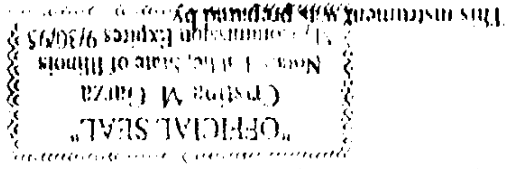 "OFFICIAL SEAL"
Cristina M. Garza
Notary Public, State of Illinois
My Commission Expires 9/30/95
This instrument was prepared by